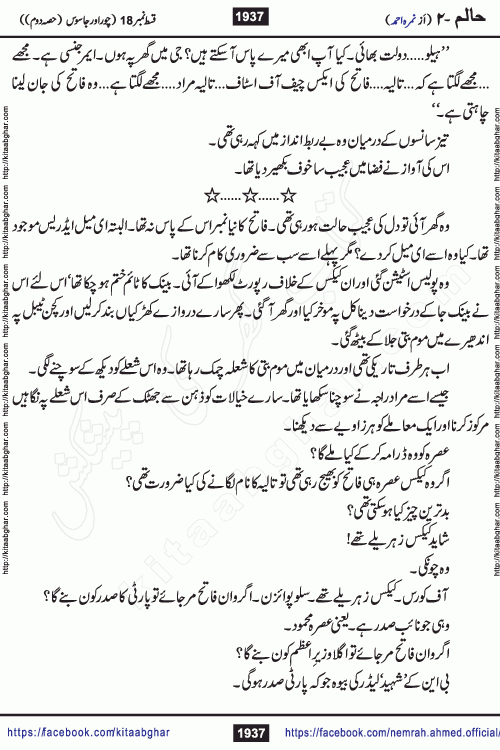 حالم -۲ (از نمرہ احمد) 1937 قسط نمبر 18 (چور اور جاسوس (حصہ دوم))
’’ہیلو.....دولت بھائی۔ کیا آپ ابھی میرے پاس آسکتے ہیں؟ جی میں گھر پہ ہوں۔ ایمرجنسی ہے۔ مجھے
...مجھے لگتا ہے کہ...تالیہ....فاتح کی ایکس چیف آف اسٹاف...تالیہ مراد....مجھے لگتا ہے...وہ فاتح کی جان لینا
چاہتی ہے۔‘‘
تیز سانسوں کے درمیان وہ بے ربط انداز میں کہہ رہی تھی۔
اس کی آواز نے فضا میں عجیب سا خوف بکھیر دیا تھا۔
☆......☆......☆
وہ گھر آئی تو دل کی عجیب حالت ہو رہی تھی۔ فاتح کا نیا نمبر اس کے پاس نہ تھا۔ البتہ ای میل ایڈریس موجود
تھا۔ کیا وہ اسے ای میل کر دے؟ مگر پہلے اسے سب سے ضروری کام کرنا تھا۔
وہ پولیس اسٹیشن گئی اور ان کیکس کے خلاف رپورٹ لکھوا کے آئی۔ بینک کا ٹائم ختم ہو چکا تھا‘ اس لئے اس
نے بینک جا کے درخواست دینا کل پہ موخر کیا اور گھر آ گئی۔ پھر سارے دروازے کھڑکیاں بند کر لیں اور کچن ٹیبل پہ
اندھیرے میں موم بتی جلا کے بیٹھ گئی۔
اب ہر طرف تاریکی تھی اور درمیان میں موم بتی کا شعلہ چمک رہا تھا۔ وہ اس شعلے کو دیکھ کے سوچنے لگی۔
جیسے اسے مراد راجہ نے سوچنا سکھایا تھا۔ سارے خیالات کو ذہن سے جھٹک کے صرف اس شعلے پہ نگاہیں
مرکوز کرنا اور ایک معاملے کو ہر زاویے سے دیکھنا۔
عصرہ کو وہ ڈرامہ کر کے کیا ملے گا؟
اگر وہ کیکس عصرہ ہی فاتح کو بھیج رہی تھی تو تالیہ کا نام لگانے کی کیا ضرورت تھی؟
بدترین چیز کیا ہو سکتی تھی؟
شاید کیکس زہریلے تھے!
وہ چونکی۔
آف کورس۔ کیکس زہریلے تھے۔ سلو پوائزن۔ اگر وان فاتح مر جائے تو پارٹی کا صدر کون بنے گا؟
وہی جو نائب صدر ہے۔ یعنی عصرہ محمود۔
اگر وان فاتح مر جائے تو اگلا وزیرِ اعظم کون بنے گا؟
بی این کے ’شہید‘ لیڈر کی بیوہ جو کہ پارٹی صدر ہوگی۔
https://facebook.com/kitaabghar 1937 https://facebook.com/nemrah.ahmed.official/
http://kitaabghar.com http://kitaabghar.com http://kitaabghar.com http://kitaabghar.com http://kitaabghar.com
http://kitaabghar.com http://kitaabghar.com http://kitaabghar.com http://kitaabghar.com http://kitaabghar.com
kitaabghar.com